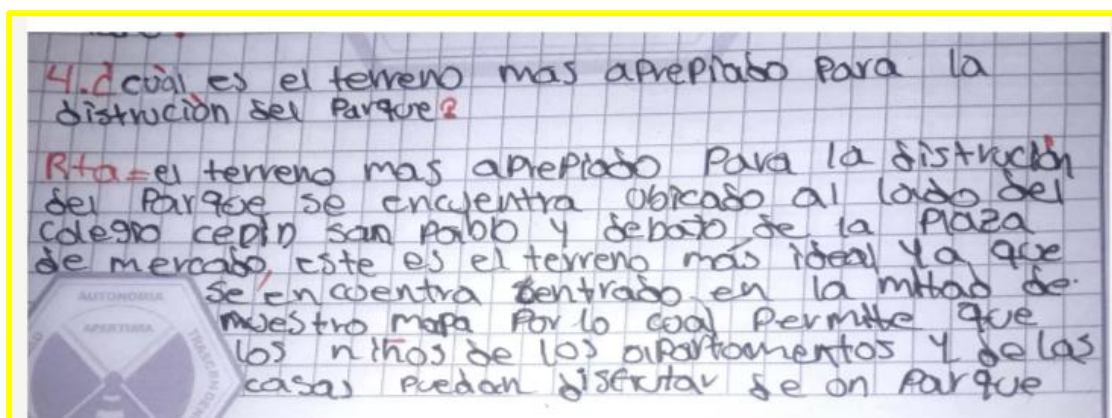 4.¿cuàl es el terreno mas aprepiado para la
distruciòn del parque?
Rta=el terreno mas aprepiado para la distrucción
del parque se encuentra obicado al lado del
colegio cedid san pablo y debajo de la plaza
de mercado, este es el terreno más ideal ya que
se encuentra centrado en la mitad de
nuestro mapa por lo cual permite que
los niños de los apartamentos y de las
casas puedan disfrutar de un parque
AUTONOMIA
APERTURA